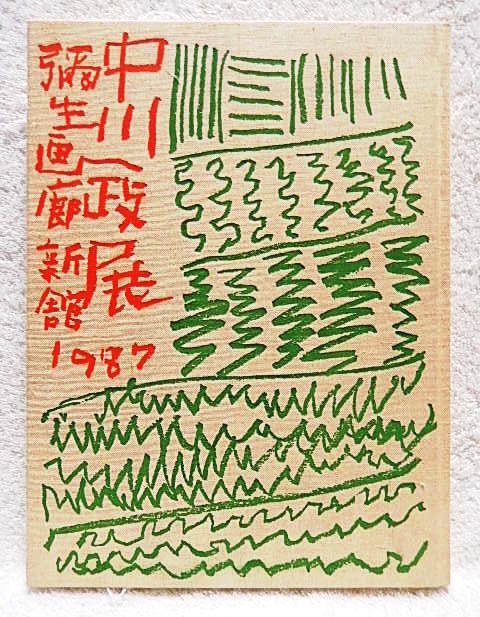 中川一政展
弥生画廊新館
1987